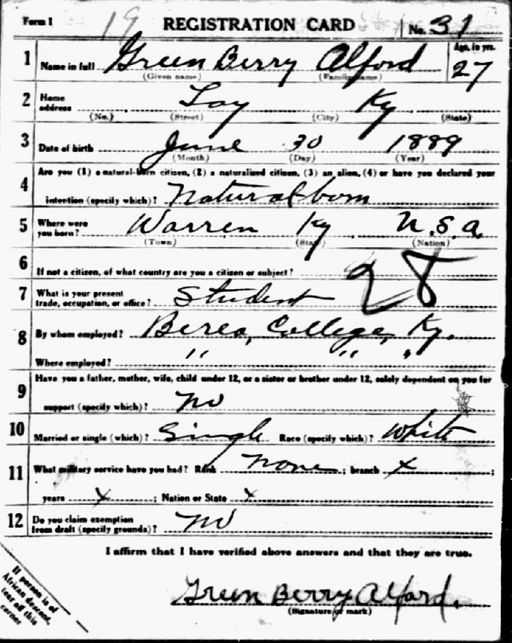 Form 1 19 REGISTRATION CARD No. 31
1 Name in full Green Berry Alford Age, in yrs. 27
(Given name) (Family name)
2 Home address Loy Ky
(No.) (Street) (City) (State)
3 Date of birth June 30 1889
(Month) (Day) (Year)
Are you (1) a natural-born citizen, (2) a naturalized citizen, (3) an alien, (4) or have you declared your
4 intention (specify which)? Natural born
5 Where were you born? Warren Ky U.S.A.
(Town) (State) (Nation)
6 If not a citizen, of what country are you a citizen or subject?
28
7 What is your present trade, occupation, or office? Student
8 By whom employed? Berea, College, Ky.
Where employed? " " "
Have you a father, mother, wife, child under 12, or a sister or brother under 12, solely dependent on you for
9 support (specify which)? No
10 Married or single (which)? Single Race (specify which)? White
11 What military service have you had? Rank none ; branch x ;
years x ; Nation or State x
12 Do you claim exemption from draft (specify grounds)? No
I affirm that I have verified above answers and that they are true.
Green Berry Alford.
(Signature or mark)
If person is of
African descent,
tear off this
corner